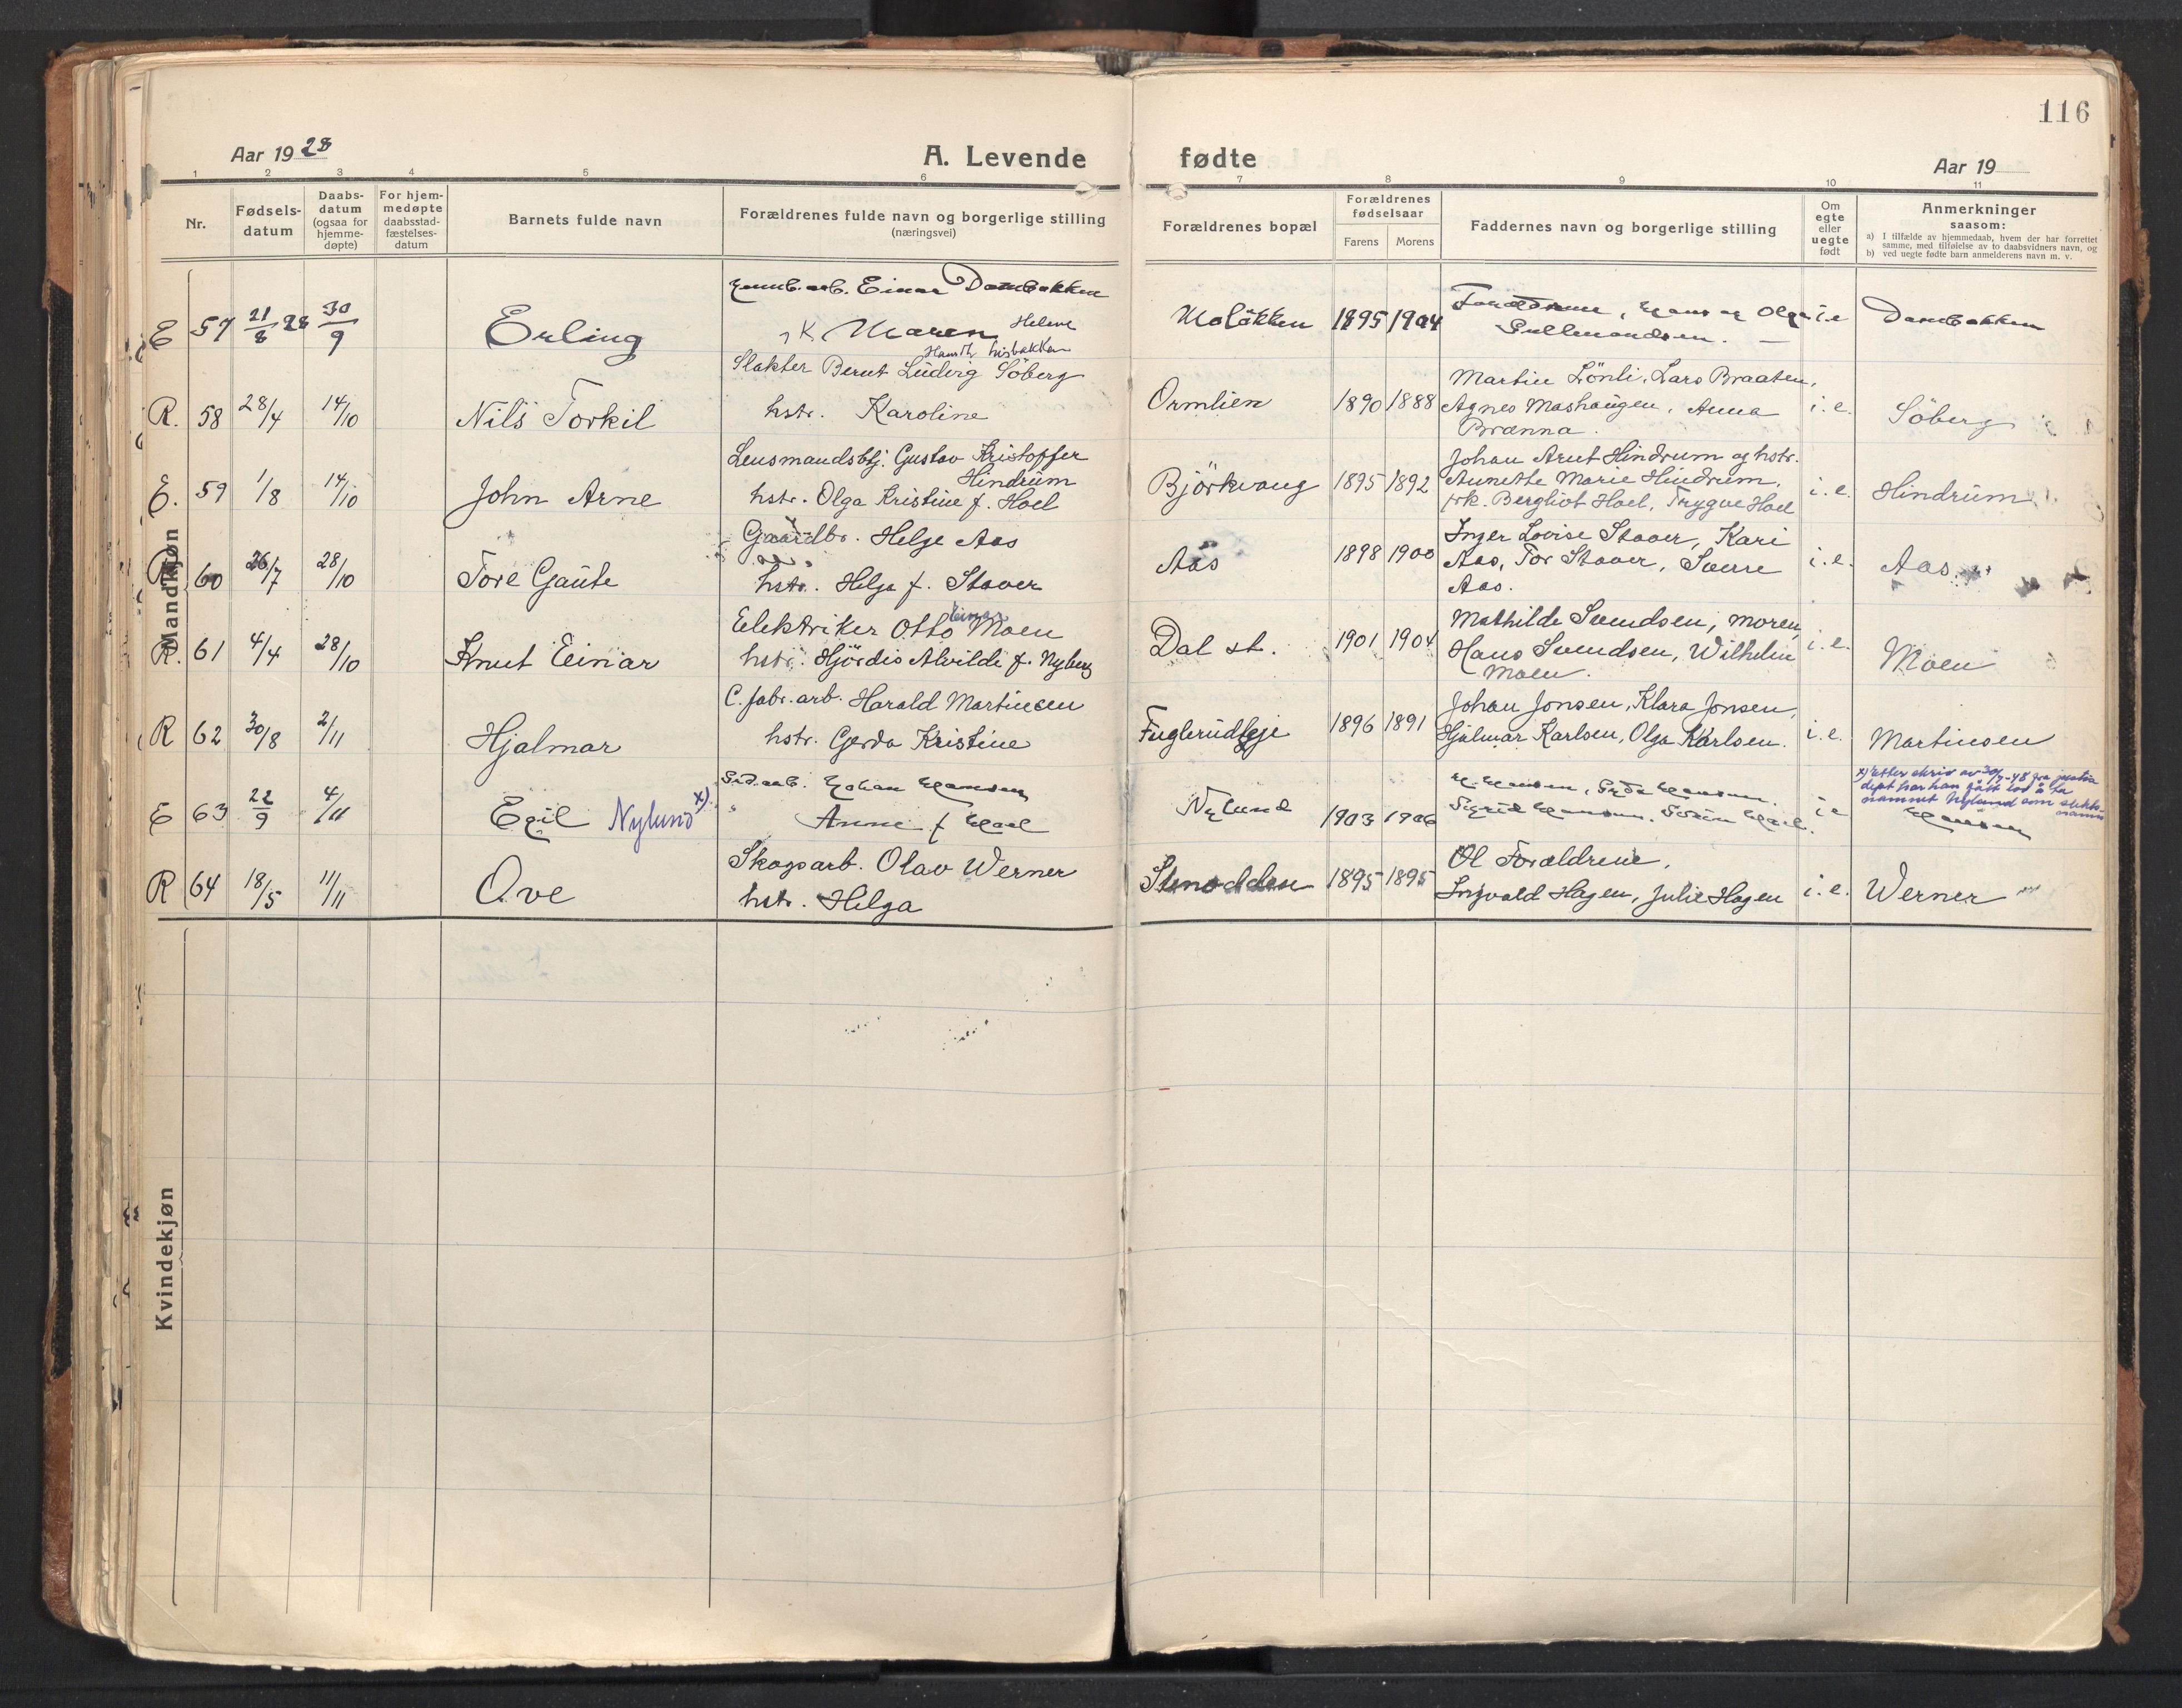 116
Aar 1928
A. Levende
fødte
Aar 19
1 2 3 4 5 6 7 8 9 10 11
Nr.
Fødsels-
datum
Daabs-
datum
(ogsaa for
hjemme-
døpte)
For hjem-
medøpte
daabsstad-
fæstelses-
datum
Barnets fulde navn
Forældrenes fulde navn og borgerlige stilling
(næringsvei)
Forældrenes bopæl
Forældrenes
fødselsaar
Farens Morens
Faddernes navn og borgerlige stilling
Om
egte
eller
uegte
født
Anmerkninger
saasom:
a) I tilfælde av hjemmedaab, hvem der har forrettet
samme, med tilføielse av to daabsvidners navn, og
b) ved uegte fødte barn anmelderens navn m. v.
Mandkjøn
E 57 21/8 28 30/9 Erling
Einar Dambakken
K Maren Helene
Moløkken 1895 1904
Forældrene, Hans og Olga
i.e Dambakken
R. 58 28/4 14/10 Nils Torkil
Slakter Bernt Ludvig Söberg
hstr. Karoline
Ormlien 1890 1888
Martin Lönli, Lars Braaten,
Agnes Mashaugen, Anna
Brænna.
i. e. Söberg
E. 59 1/8 14/10 John Arne
Lensmandsbtj. Gustav Kristoffer
Hindrum
hstr. Olga Kristine f. Hoel
Björkvang 1895 1892
Johan Arnt Hindrum og hstr.
Annette Marie Hindrum,
frk. Bergliot Hoel, Trygve Hoel
i. e. Hindrum
R 60 26/7 28/10 Tore Gaute
Gaardbr. Helge Aas
hstr. Helga f. Staver
Aas 1898 1900
Inger Lovise Staver, Kari
Aas, Tor Staver, Sverre
Aas.
i. e. Aas
R. 61 4/4 28/10 Knut Einar
Elektriker Otto Einar Moen
hstr. Hjördis Alvilde f. Nyberg
Dal st. 1901 1904
Mathilde Svendsen, moren,
Hans Svendsen, Wilhelm
Moen.
i. e. Moen
R 62 30/8 2/11 Hjalmar
C. fabr. arb. Harald Martinsen
hstr. Gerda Kristine
Fuglerudeje 1896 1891
Johan Jonsen, Klara Jonsen,
Hjalmar Karlsen, Olga Karlsen.
i. e. Martinsen
E 63 22/9 4/11 Egil Nylund x)
Johan Hansen
Anne f Hoel
Nylund 1903 1906
H. Hansen,
Sigrid Hansen.
i e
x) Etter skriv av 30/7-48 fra justis
dept har han fått lov å ta
namnet Nylund som slekts-
namn
Hansen
R 64 18/5 11/11 Ove
Skogsarb. Olav Werner
hstr. Helga
Stenodden 1895 1895
Ol Forældrene,
Ingvald Hagen, Julie Hagen
i. e. Werner
Kvindekjøn